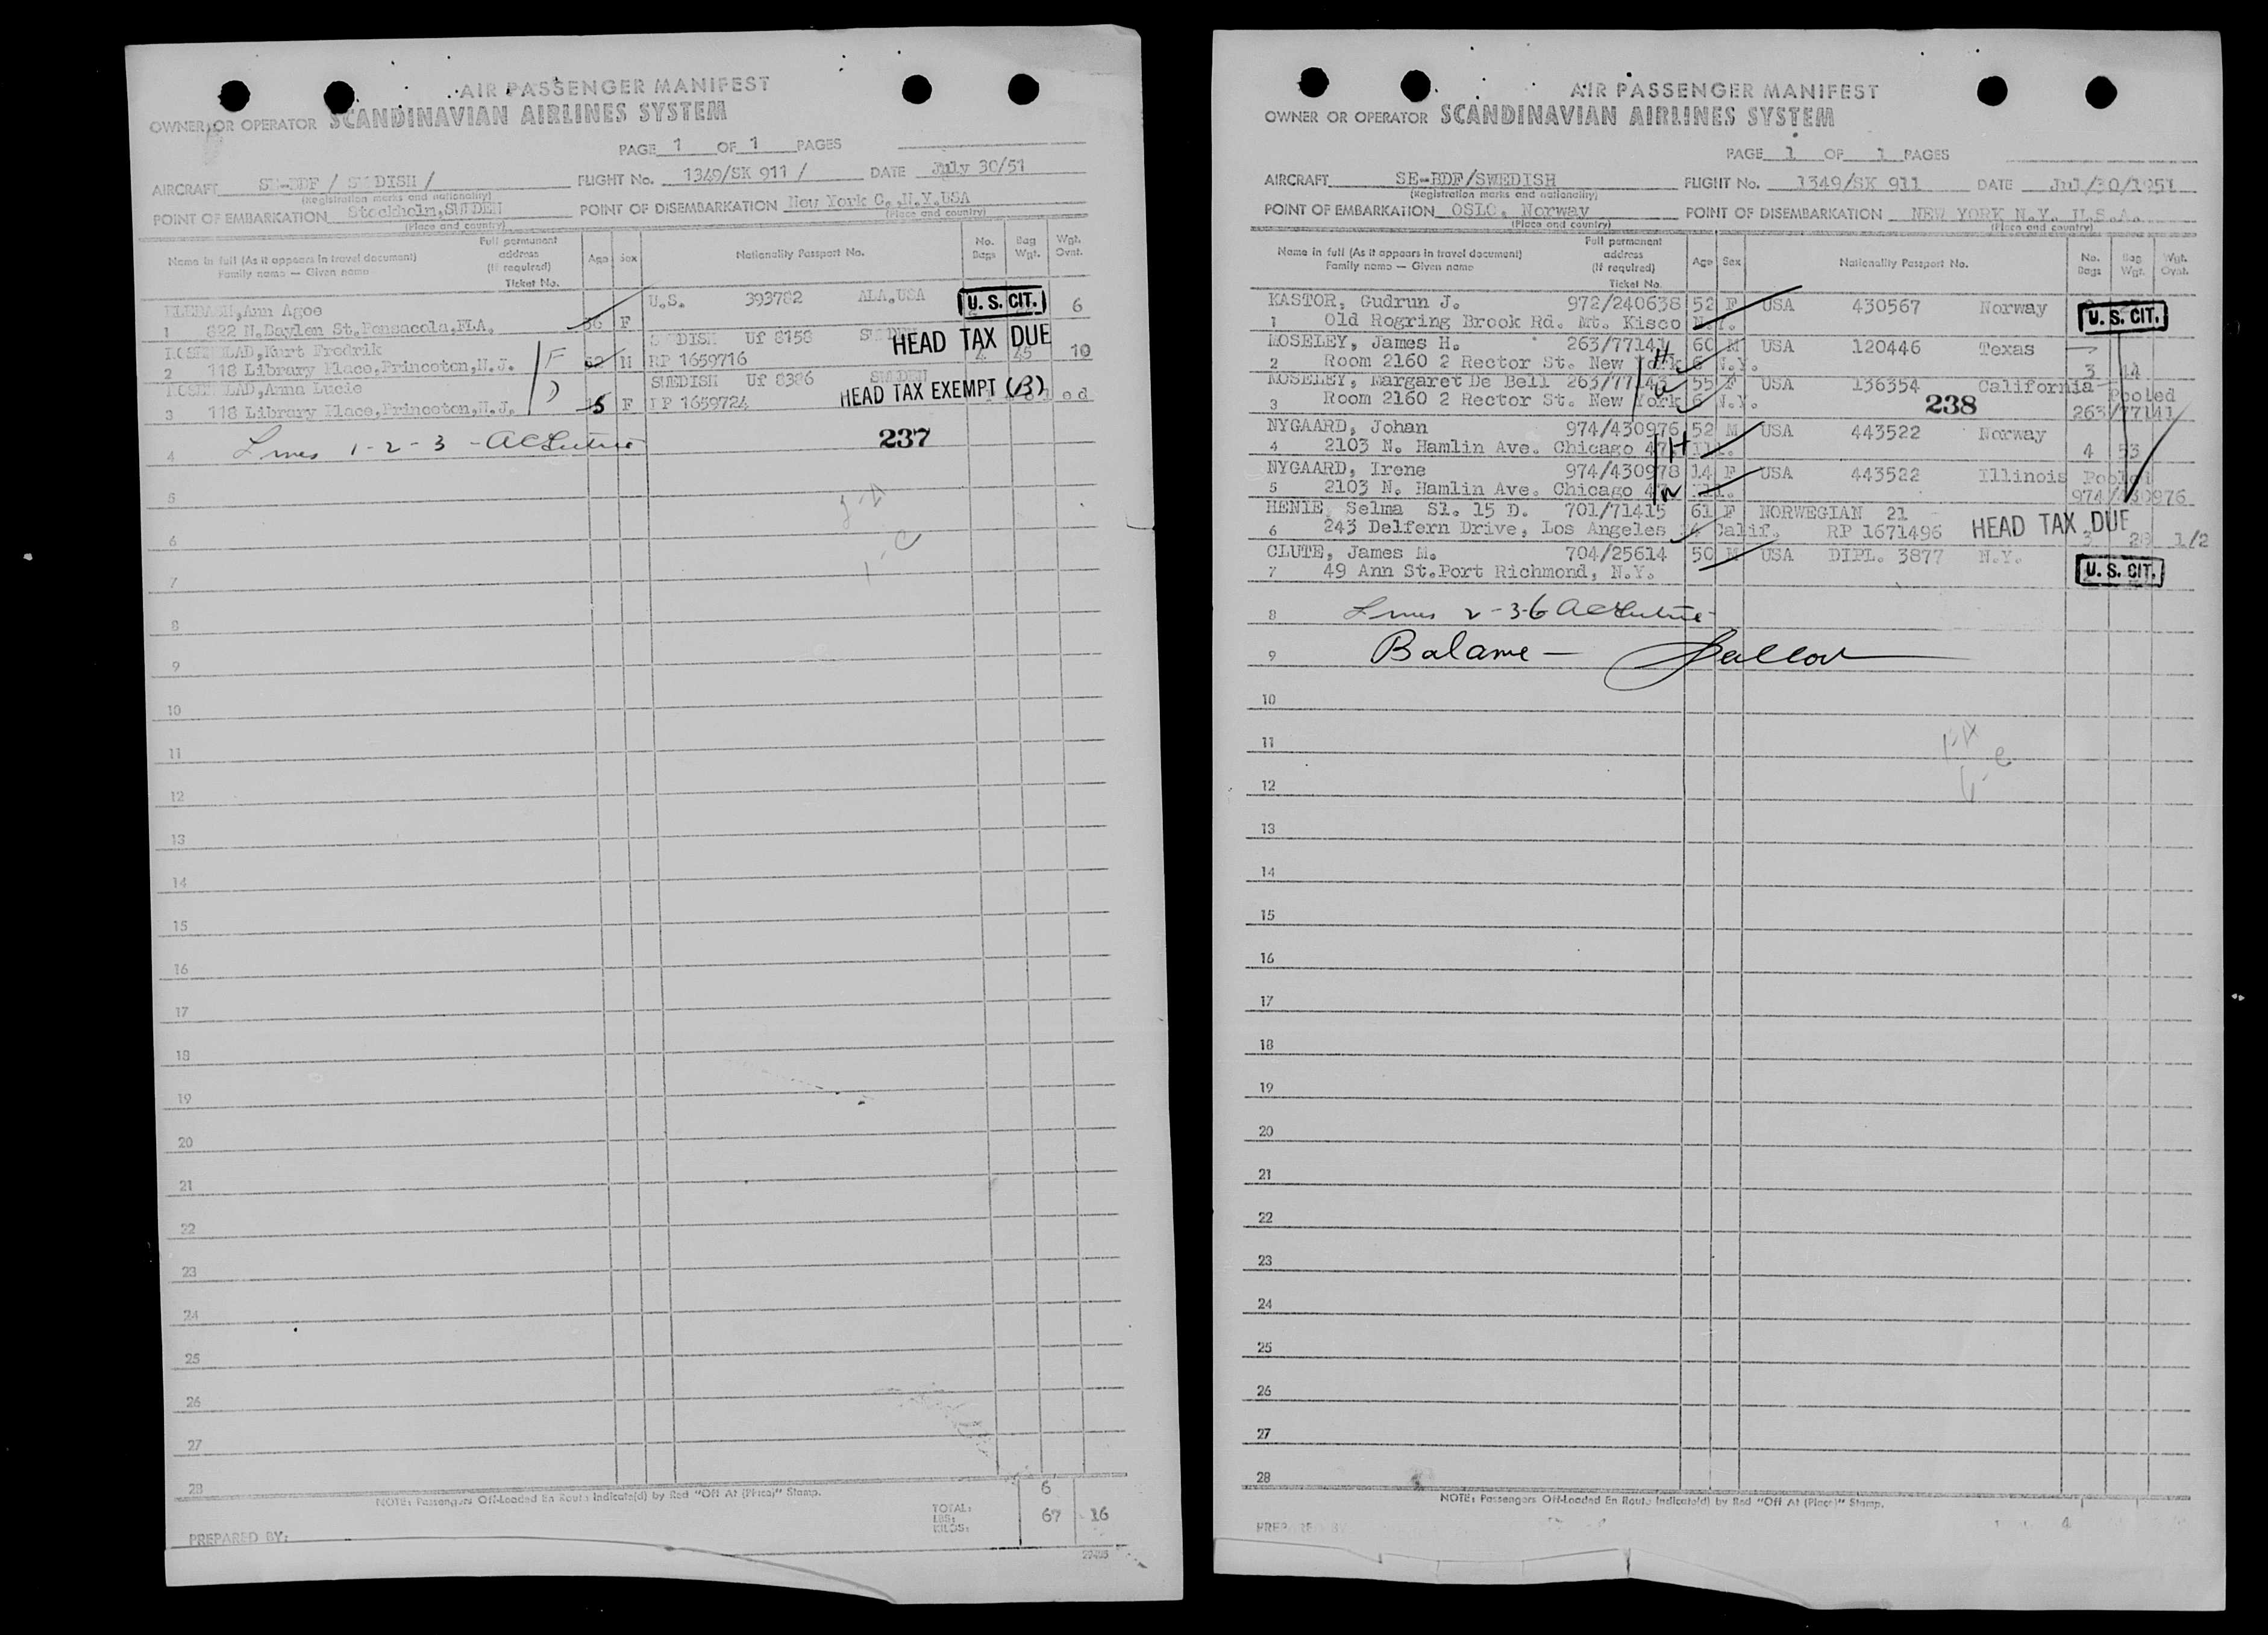 AIR PASSENGER MANIFEST
OWNER OR OPERATOR SCANDINAVIAN AIRLINES SYSTEM
PAGE 1 OF 1 PAGES
AIRCRAFT SE-BDF / SWEDISH / FLIGHT No. 1349/SK 911 / DATE July 30/51
(Registration marks and nationality)
POINT OF EMBARKATION Stockholm,SWEDEN POINT OF DISEMBARKATION New York C.,N.Y.USA
(Place and country) (Place and country)
Name in full (As it appears in travel document) Family name — Given name Full permanent address (If required) Ticket No. Age Sex Nationality Passport No. No. Bags Bag Wgt. Wgt. Ovnt.
,Ann Agee F U.S. 393782 ALA,USA U. S. CIT. 6
1 822 N.Baylen St.Pensacola,FLA.
ROSENBLAD,Kurt Fredrik M SWEDISH Uf 8158 SWEDEN HEAD TAX DUE
2 118 Library Place,Princeton,N.J. F RP 1659716 4 45 10
ROSENBLAD,Anna Lucie F SWEDISH Uf 8386 SWEDEN
3 118 Library Place,Princeton,N.J. RP 1659724 HEAD TAX EXEMPT (B)
4 Lines 1-2-3 - 237
5
6
7
8
9
10
11
12
13
14
15
16
17
18
19
20
21
22
23
24
25
26
27
28
6
NOTE: Passengers Off-Loaded En Route Indicate(d) by Red "Off At (Place)" Stamp.
TOTAL:
LBS: 67 16
KILOS:
PREPARED BY:
AIR PASSENGER MANIFEST
OWNER OR OPERATOR SCANDINAVIAN AIRLINES SYSTEM
PAGE 1 OF 1 PAGES
AIRCRAFT SE-BDF/SWEDISH FLIGHT No. 1349/SK 911 DATE Jul/30/1951
(Registration marks and nationality)
POINT OF EMBARKATION OSLO, Norway POINT OF DISEMBARKATION NEW YORK N.Y. U.S.A.
(Place and country) (Place and country)
Name in full (As it appears in travel document) Family name — Given name Full permanent address (If required) Ticket No. Age Sex Nationality Passport No. No. Bags Bag Wgt. Wgt. Ovnt.
KASTOR, Gudrun J. 972/240638 52 F USA 430567 Norway U. S. CIT.
1 Old Rogring Brook Rd. Mt. Kisco N.Y.
MOSELEY, James H. 263/77141 60 M USA 120446 Texas
2 Room 2160 2 Rector St. New York 6 N.Y. H 3 14
MOSELEY, Margaret De Bell 263/77143 55 F USA 136354 California Pooled
3 Room 2160 2 Rector St. New York 6 N.Y. W 238 263/77141
NYGAARD, Johan 974/430976 52 M USA 443522 Norway
4 2103 N. Hamlin Ave. Chicago 47 Ill. H 4 53
NYGAARD, Irene 974/430978 14 F USA 443522 Illinois Pooled
5 2103 N. Hamlin Ave. Chicago 47 Ill. 974/430976
HENIE, Selma Sl. 15 D. 701/71415 61 F NORWEGIAN 21 HEAD TAX DUE
6 243 Delfern Drive, Los Angeles Calif. RP 1671496 3 28 1/2
CLUTE, James M. 704/25614 50 M USA DIPL. 3877 N.Y. U. S. CIT.
7 49 Ann St.Port Richmond, N.Y.
8 Lines 2-3-6
9 Balance —
10
11
12
13
14
15
16
17
18
19
20
21
22
23
24
25
26
27
28
NOTE: Passengers Off-Loaded En Route Indicate(d) by Red "Off At (Place)" Stamp.
PREPARED BY 4